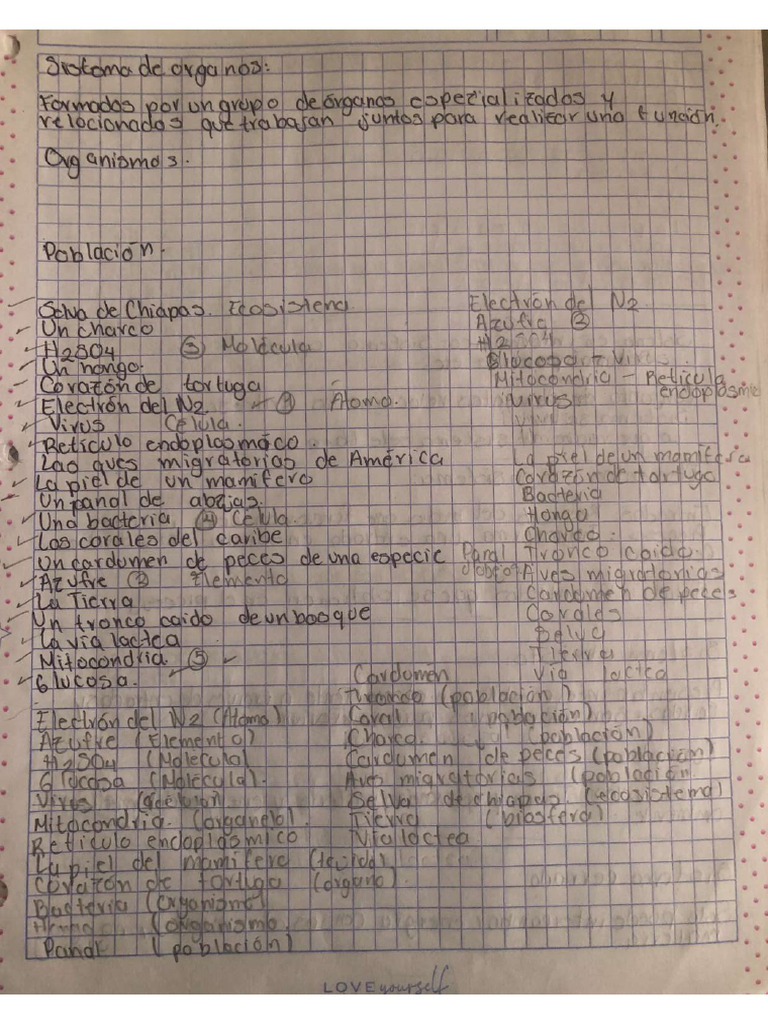 Sistema de organos:
Formados por un grupo de órganos espezializados y
relocionados que trabajan juntos para realizar una función.
Organismos.
Población.
Selva de Chiapas. Ecosistema
Un charco
H2SO4 ③ Molécula
Un hongo.
Corazón de tortuga
Electrón del N2. ① Átomo.
Virus Célula.
Retículo endoplasmáco.
Las aves migratorias de América
La piel de un mamifero
Un panal de abejas.
Una bacteria ④ Célula
Los corales del caribe
Un cardumen de peces de una especie
Azufre ② Elemento
La Tierra
Un tronco caido de un bosque
La vía lactea
Mitocondria ⑤
Glucosa.
Electrón del N2
Azufre ②
H2SO4
Mitocondria - Reticulo
endoplasme
virus
La piel de un mamiferia
Corazón de tortuga
Bacteria
Hongo
Charco.
Panal Tronco caido.
Aves migratorias
Cardumen de peces
Corales
Selva
Tierra
Cardumen Vía lactea
(población)
Electrón del N2 (Atomo) Coral (población)
Azufre (Elemento) Charco (población)
H2SO4 (Molecula) Cardumen de peces (población)
Glocosa (Molecula). Aves migratorias (población
Virus Selva de chiapas. (ecosistema)
Mitocondria. (organelo). Tierra (biosfera)
Retículo endoplásmico Via lactea
La piel del mamifero (tejido)
Corazón de tortuga (órgano).
Bacteria (organismo)
(organismo.
Panal (población)
LOVE yourself